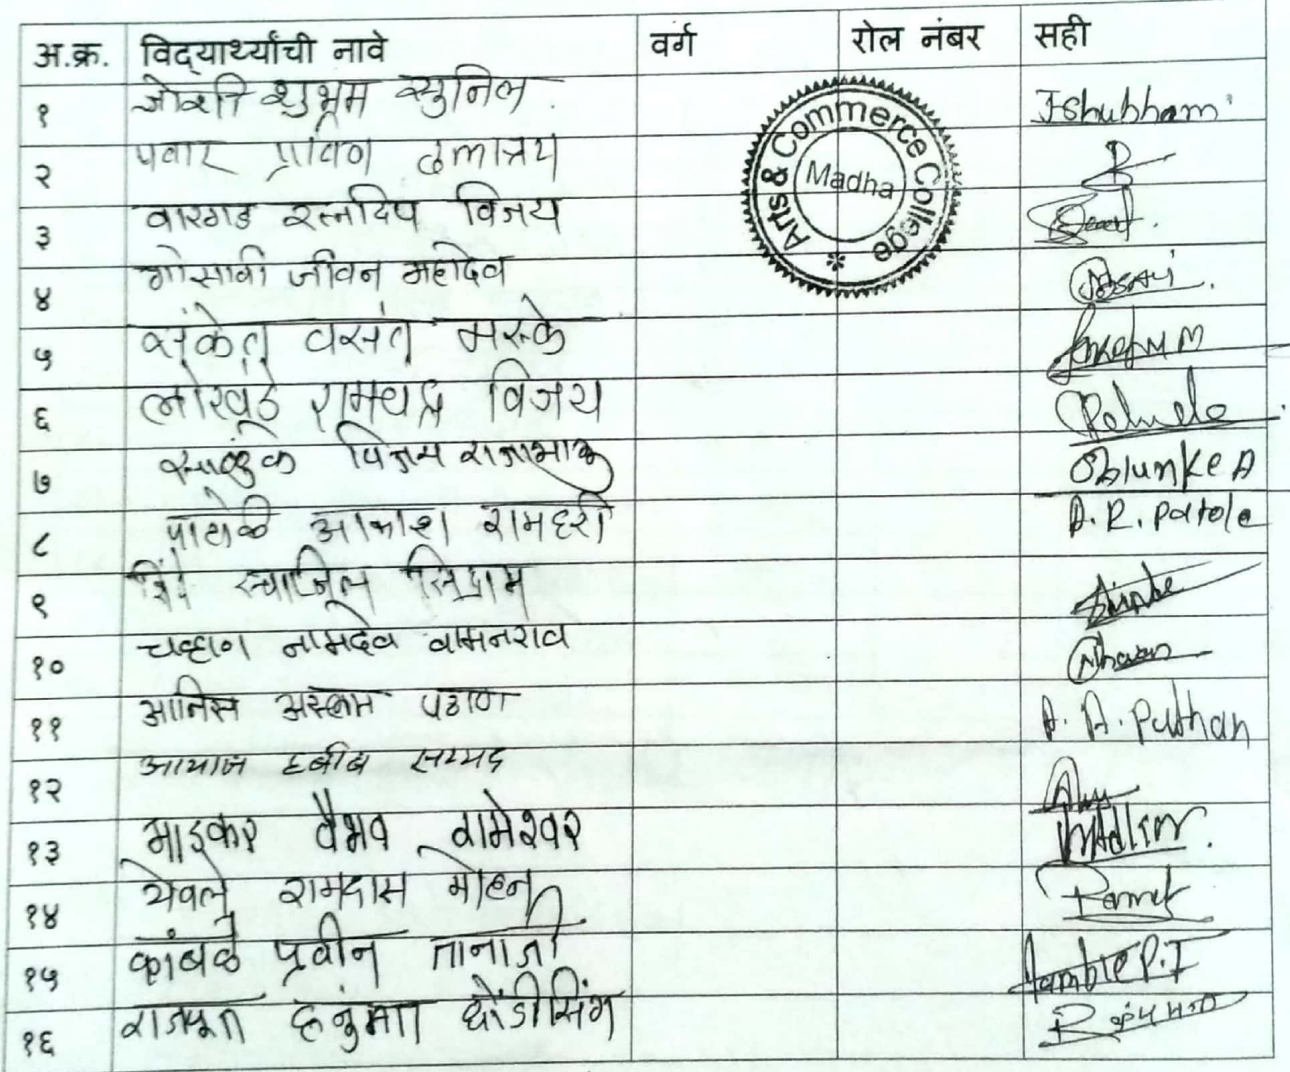 अ.क्र. विद्यार्थ्यांची नावे वर्ग रोल नंबर सही
१ जोशी शुभम सुनिल J Shubham
२ पवार प्रविण दत्तात्रय
३ वारगड रत्नदिप विजय
४ गोसावी जीवन महादेव
५ संकेत वसंत मस्के
६ लोखंडे रामचंद्र विजय
७ साळुंके विजय राजाभाऊ Salunke A
८ पाटोळे आकाश रामहरी A. R. Patole
९ स्वप्निल सिद्राम
१० चव्हाण नामदेव वामनराव Chavan
११ आनिस अस्लम पठाण A. A. Pathan
१२ आयाज हबीब सय्यद
१३ माडकर वैभव वामेश्वर
१४ येवले रामदास मोहन
१५ कांबळे प्रवीन तानाजी Kamble P.T
१६ राजपूत हनुमंत धोंडीसिंग
Arts & Commerce College
Madha